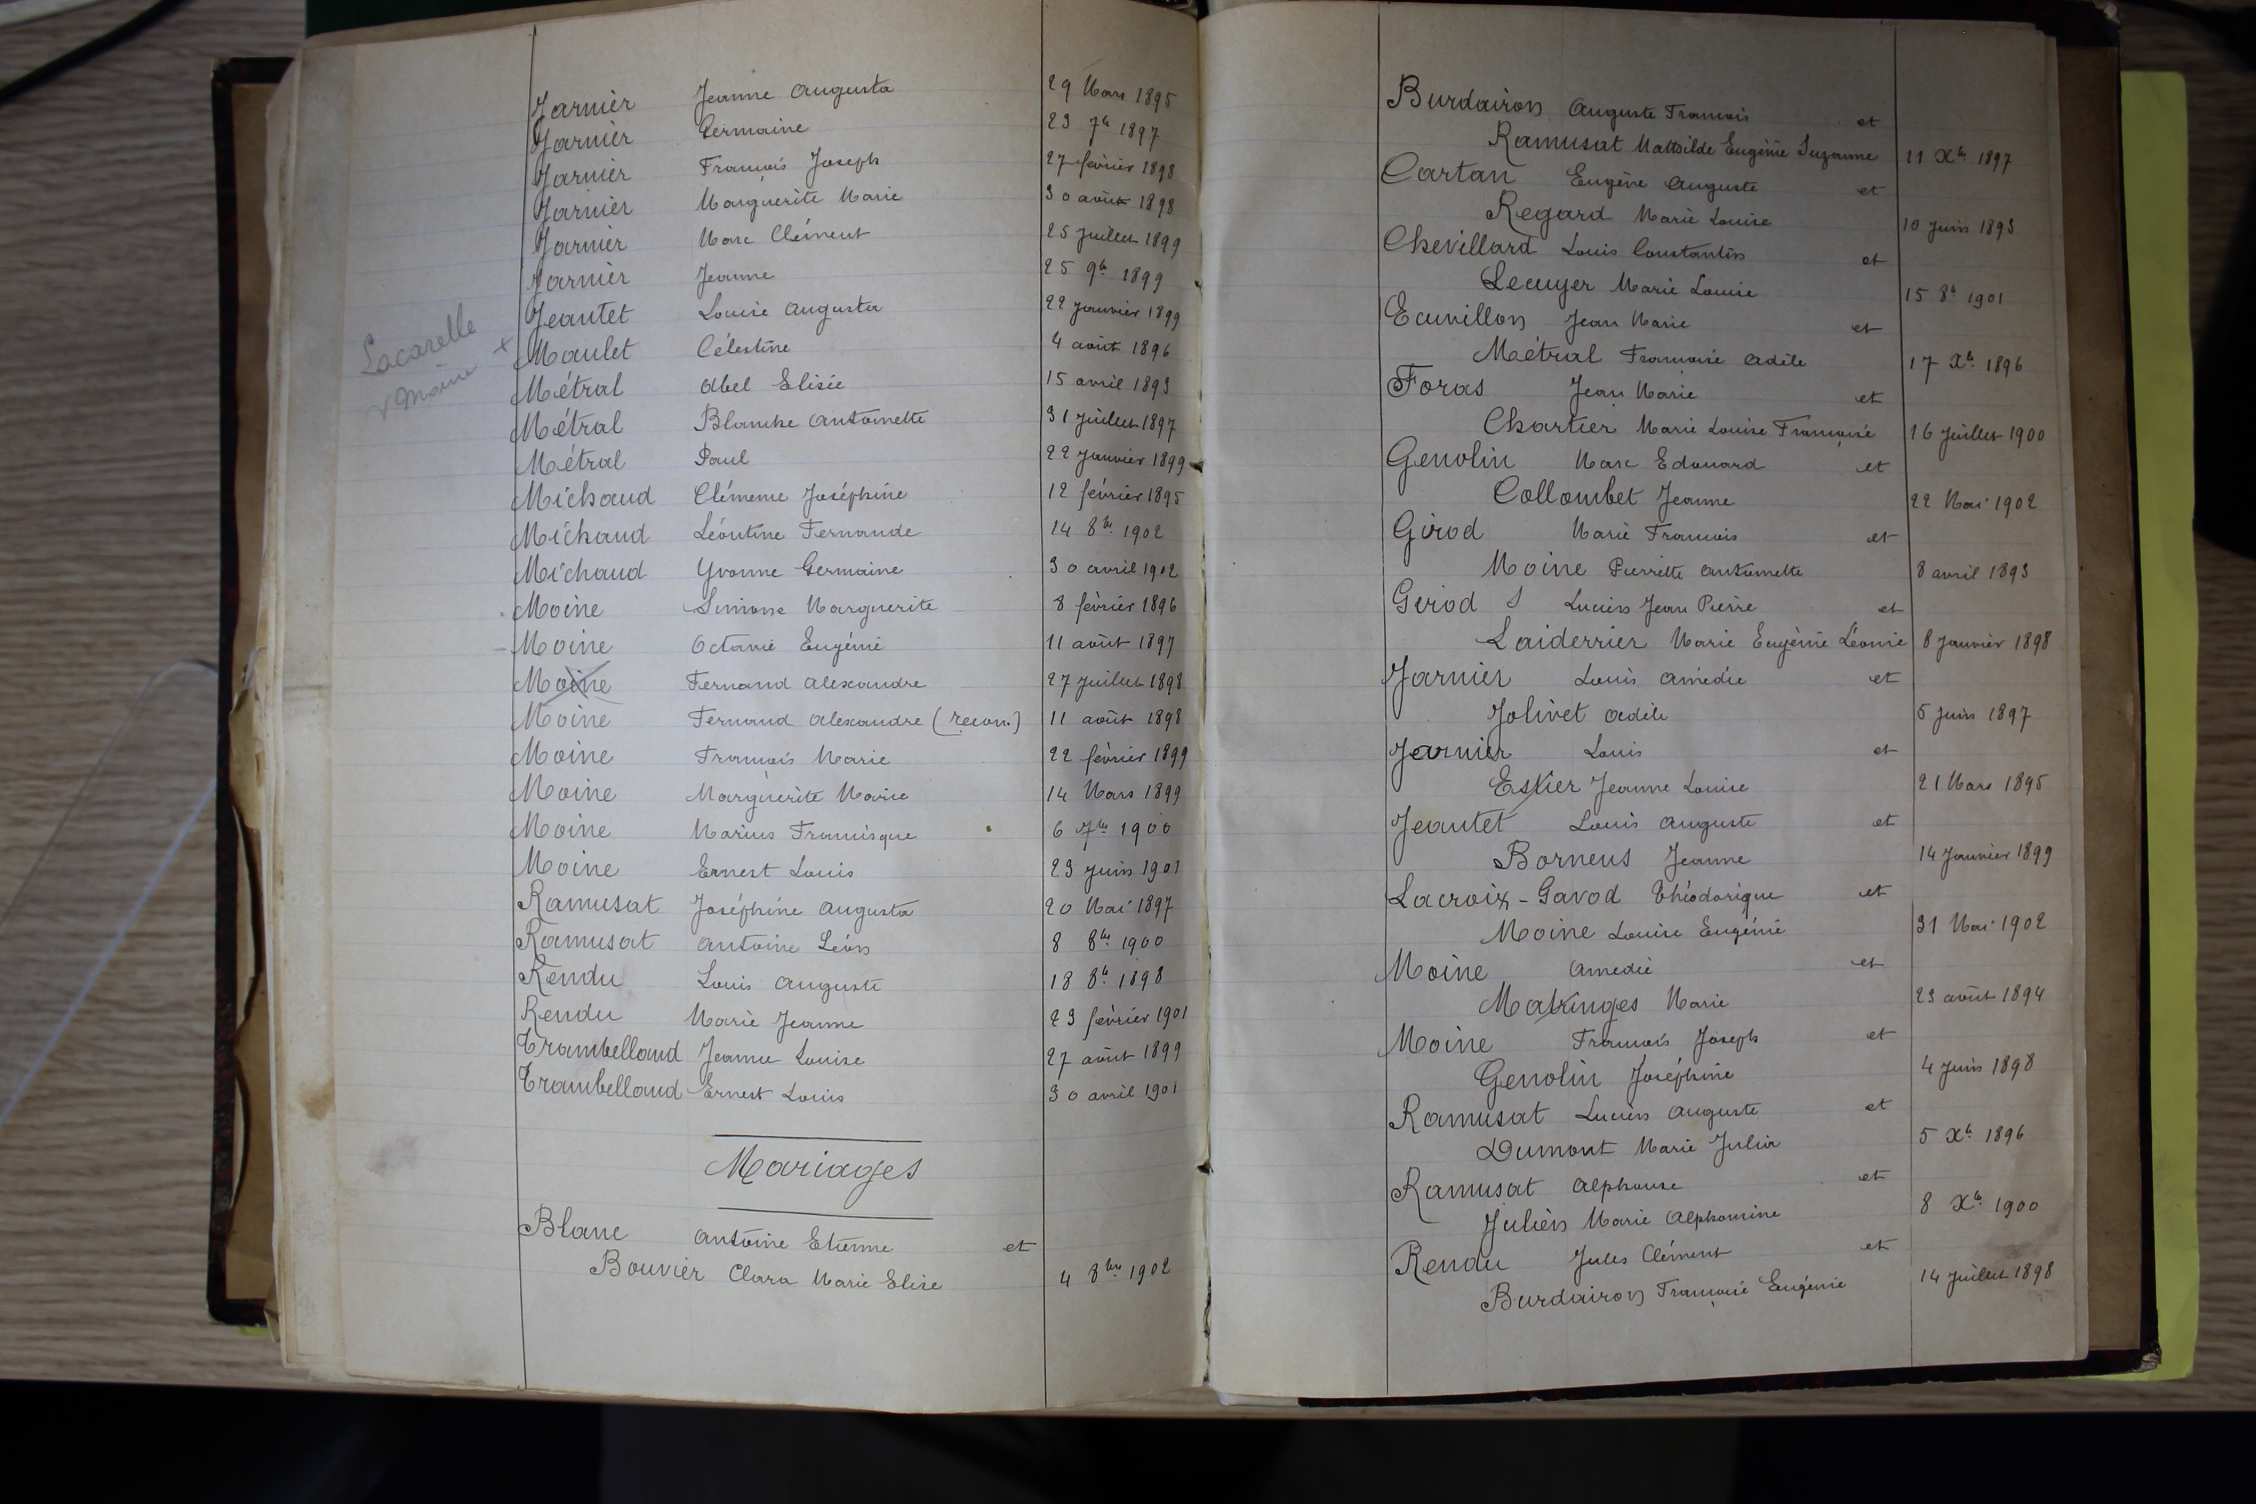 Jarnier Jeanne Augusta 29 Mars 1895
Jarnier Germaine 23 7bre 1897
Jarnier François Joseph 27 février 1898
Jarnier Marguerite Marie 30 août 1898
Jarnier Marc Clément 25 Juillet 1899
Jarnier Jeanne 25 9bre 1899
Jeantet Louise Augusta 22 Janvier 1899
Lacarelle
v Moine +
Maulet Célestine 4 août 1896
Métral Abel Elisée 15 avril 1893
Métral Blanche Antoinette 31 Juillet 1897
Métral Paul 22 Janvier 1899
Michaud Clémence Joséphine 12 février 1895
Michaud Léontine Fernande 14 8bre 1902
Michaud Yvonne Germaine 30 avril 1902
Moine Simone Marguerite 8 février 1896
- Moine Octavie Eugénie 11 août 1897
Moine Fernand Alexandre 27 Juillet 1898
Moine Fernand Alexandre (recon.) 11 août 1898
Moine François Marie 22 février 1899
Moine Marguerite Marie 14 Mars 1899
Moine Marius Francisque 6 7bre 1900
Moine Ernest Louis 23 Juin 1901
Ramusat Joséphine Augusta 20 Mai 1897
Ramusat Antoine Léon 8 8bre 1900
Rendu Louis Auguste 18 8bre 1898
Rendu Marie Jeanne 23 février 1901
Trambelland Jeanne Louise 27 août 1899
Trambelland Ernest Louis 30 avril 1901
Mariages
Blanc Antoine Etienne et
Bouvier Clara Marie Elise 4 8bre 1902
Burdairon Auguste François et
Ramusat Mathilde Eugénie Suzanne 11 Xbre 1897
Cartan Eugène Auguste et
Regard Marie Louise 10 Juin 1893
Chevillard Louis Constantin et
Lecuyer Marie Louise 15 8bre 1901
Ecuvillon Jean Marie et
Métral Françoise Adèle 17 Xbre 1896
Foras Jean Marie et
Chartier Marie Louise Françoise 16 Juillet 1900
Genolin Marc Edouard et
Collombet Jeanne 22 Mai 1902
Girod Marie François et
Moine Pierrette Antoinette 8 avril 1893
Girod Lucien Jean Pierre et
Laiderrier Marie Eugénie Léonie 8 Janvier 1898
Jarnier Louis Amédée et
Jolivet Adèle 5 Juin 1897
Jarnier Louis et
Eskier Jeanne Louise 21 Mars 1895
Jeantet Louis Auguste et
Bornens Jeanne 14 Janvier 1899
Lacroix-Gavod Théodorique et
Moine Louise Eugénie 31 Mai 1902
Moine Amédée et
Matringes Marie 23 août 1894
Moine François Joseph et
Genolin Joséphine 4 Juin 1898
Ramusat Lucien Auguste et
Dumont Marie Julia 5 Xbre 1896
Ramusat Alphonse et
Julien Marie Alphonsine 8 Xbre 1900
Rendu Jules Clément et
Burdairon Françoise Eugénie 14 Juillet 1898